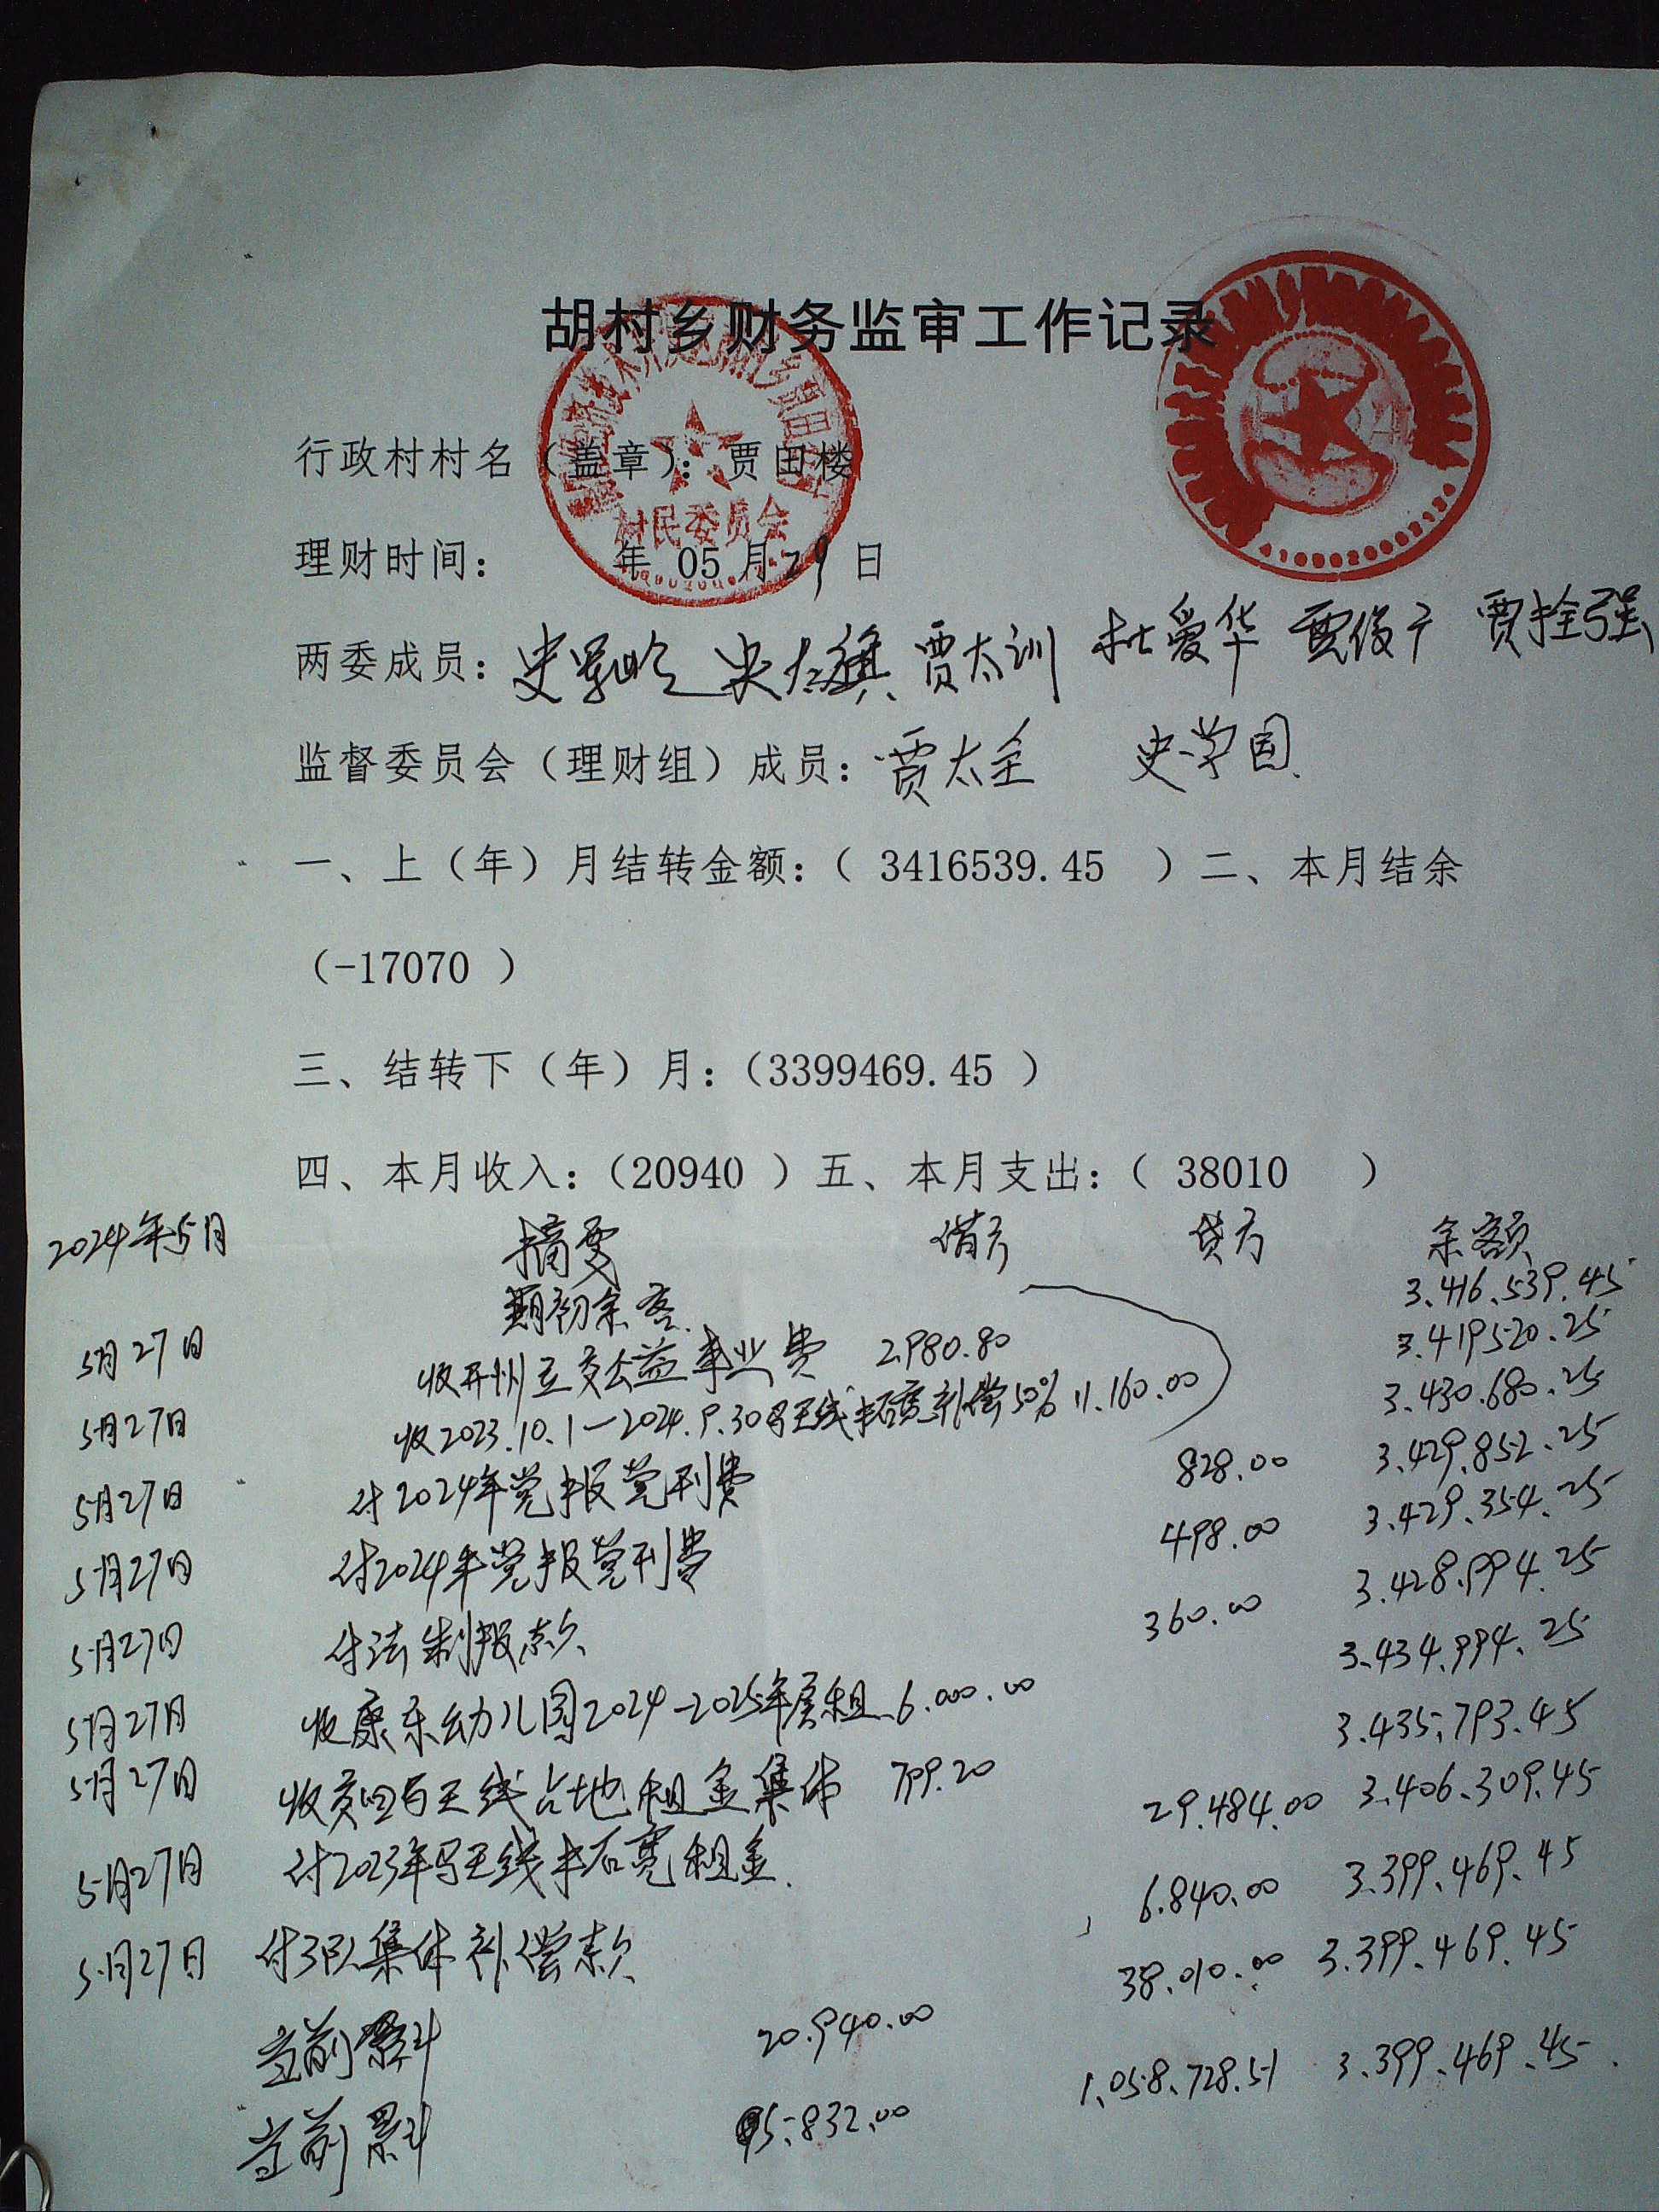 胡村乡财务监审工作记录
行政村村名（盖章）：贾田楼
村民委员会
理财时间： 年 05 月 29 日
两委成员： 贾太训 杜爱华 贾俊广 贾拴强
监督委员会（理财组）成员：贾太全 史学国
一、上（年）月结转金额：（ 3416539.45 ）二、本月结余
（-17070 ）
三、结转下（年）月：（3399469.45 ）
四、本月收入：（20940 ）五、本月支出：（ 38010 ）
2024年5月 摘要 借方 贷方 余额
期初余额 3.416.539.45
5月27日 收 公益事业费 2980.80 3.419520.25
5月27日 收2023.10.1—2024.9.30 天线 补偿50% 11.160.00 3.430.680.25
5月27日 付2024年党报党刊费 828.00 3.429.852.25
5月27日 付2024年党报党刊费 498.00 3.429.354.25
5月27日 付法制报款 360.00 3.428.994.25
5月27日 收康乐幼儿园2024-2025年房租 6.000.00 3.434.994.25
5月27日 收 天线占地租金集体 799.20 3.435.793.45
5月27日 付2023年 天线 租金 29.484.00 3.406.309.45
5月27日 付3队集体补偿款 6.840.00 3.399.469.45
当前累计 20.940.00 38.010.00 3.399.469.45
当前累计 5.832.00 1.058.728.51 3.399.469.45